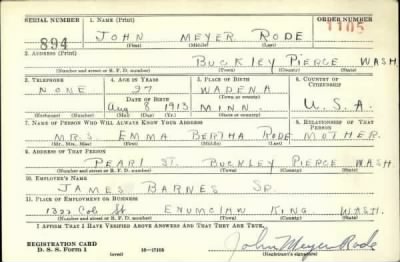 SERIAL NUMBER 1. NAME (Print) ORDER NUMBER
894 JOHN MEYER RODE 1105
(First) (Middle) (Last)
2. ADDRESS (Print)
BUCKLEY PIERCE WASH
(Number and street or R. F. D. number) (Town) (County) (State)
3. TELEPHONE 4. AGE IN YEARS 5. PLACE OF BIRTH 6. COUNTRY OF CITIZENSHIP
NONE 27 WADENA
DATE OF BIRTH (Town or county)
Aug 8 1913 MINN. U.S.A.
(Exchange) (Number) (Mo.) (Day) (Yr.) (State or country)
7. NAME OF PERSON WHO WILL ALWAYS KNOW YOUR ADDRESS 8. RELATIONSHIP OF THAT PERSON
MRS. EMMA BERTHA RODE MOTHER.
(Mr., Mrs., Miss) (First) (Middle) (Last)
9. ADDRESS OF THAT PERSON
PEARL ST. BUCKLEY PIERCE WASH
(Number and street or R. F. D. number) (Town) (County) (State)
10. EMPLOYER'S NAME
JAMES BARNES SR.
11. PLACE OF EMPLOYMENT OR BUSINESS
St ENUMCLAW KING WASH.
(Number and street or R. F. D. number) (Town) (County) (State)
I AFFIRM THAT I HAVE VERIFIED ABOVE ANSWERS AND THAT THEY ARE TRUE.
REGISTRATION CARD
D. S. S. Form 1 (over) 16—17105 John Meyer Rode
(Registrant's signature)